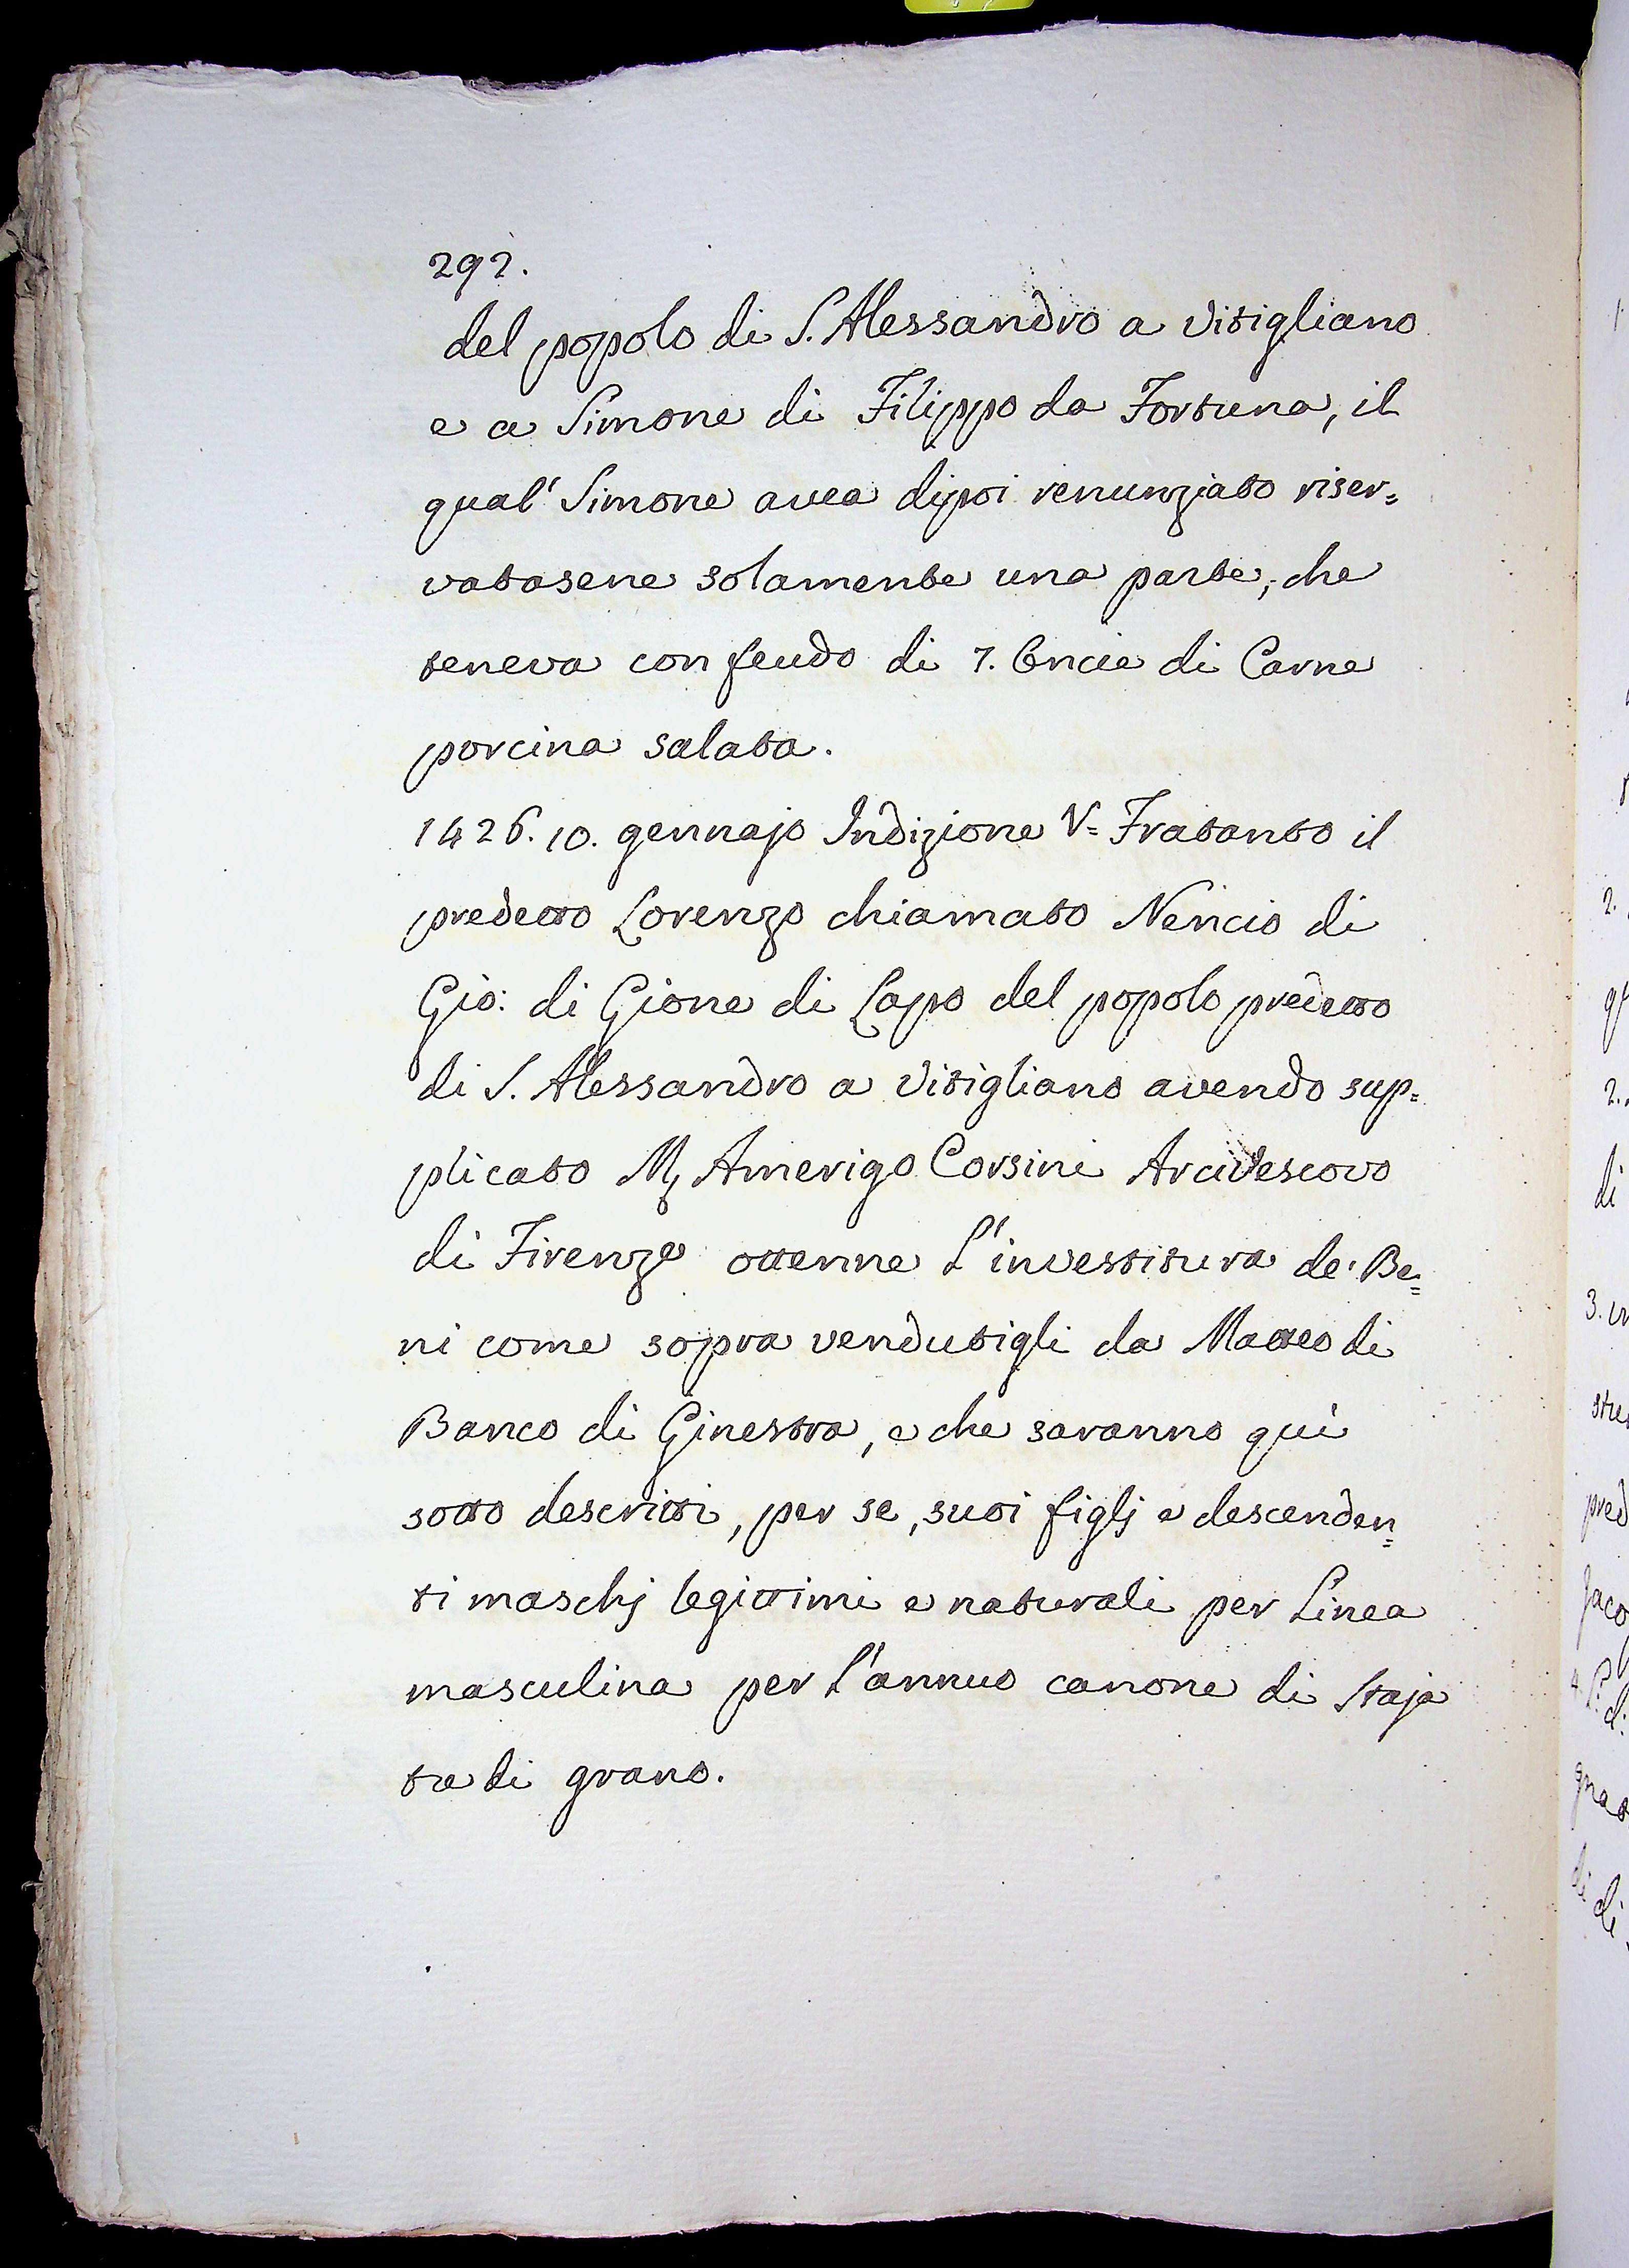 292.
del popolo di S. Alessandro a Vitigliano
e a Simone di Filippo da Fortuna, il
qual' Simone avea dipoi renunziato riser=
vatasene solamente una parte, che
teneva con feudo di 7. Oncie di Carne
porcina salata.
1426. 10. gennajo Indizione V= Fratanto il
predetto Lorenzo chiamato Nencio di
Gio: di Gione di Lapo del popolo predetto
di S. Alessandro a Vitigliano avendo sup=
plicato M, Amerigo Corsini Arcivescovo
di Firenze ottenne L'investitura de' Be=
ni come sopra vendutigli da Matteo di
Banco di Ginestra, e che saranno quì
sotto descritti, per se, suoi figlj e descenden=
ti maschj legittimi e naturali per Linea
masculina per l'annuo canone di Staja
tre di grano.